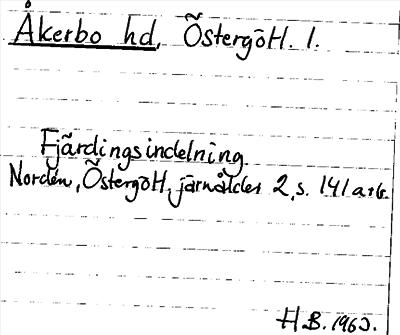 Åkerbo hd, Östergötl. l.
Fjärdingsindelning.
Nordén, Östergötl. järnålder 2, s. 141 a
H.B. 1960.